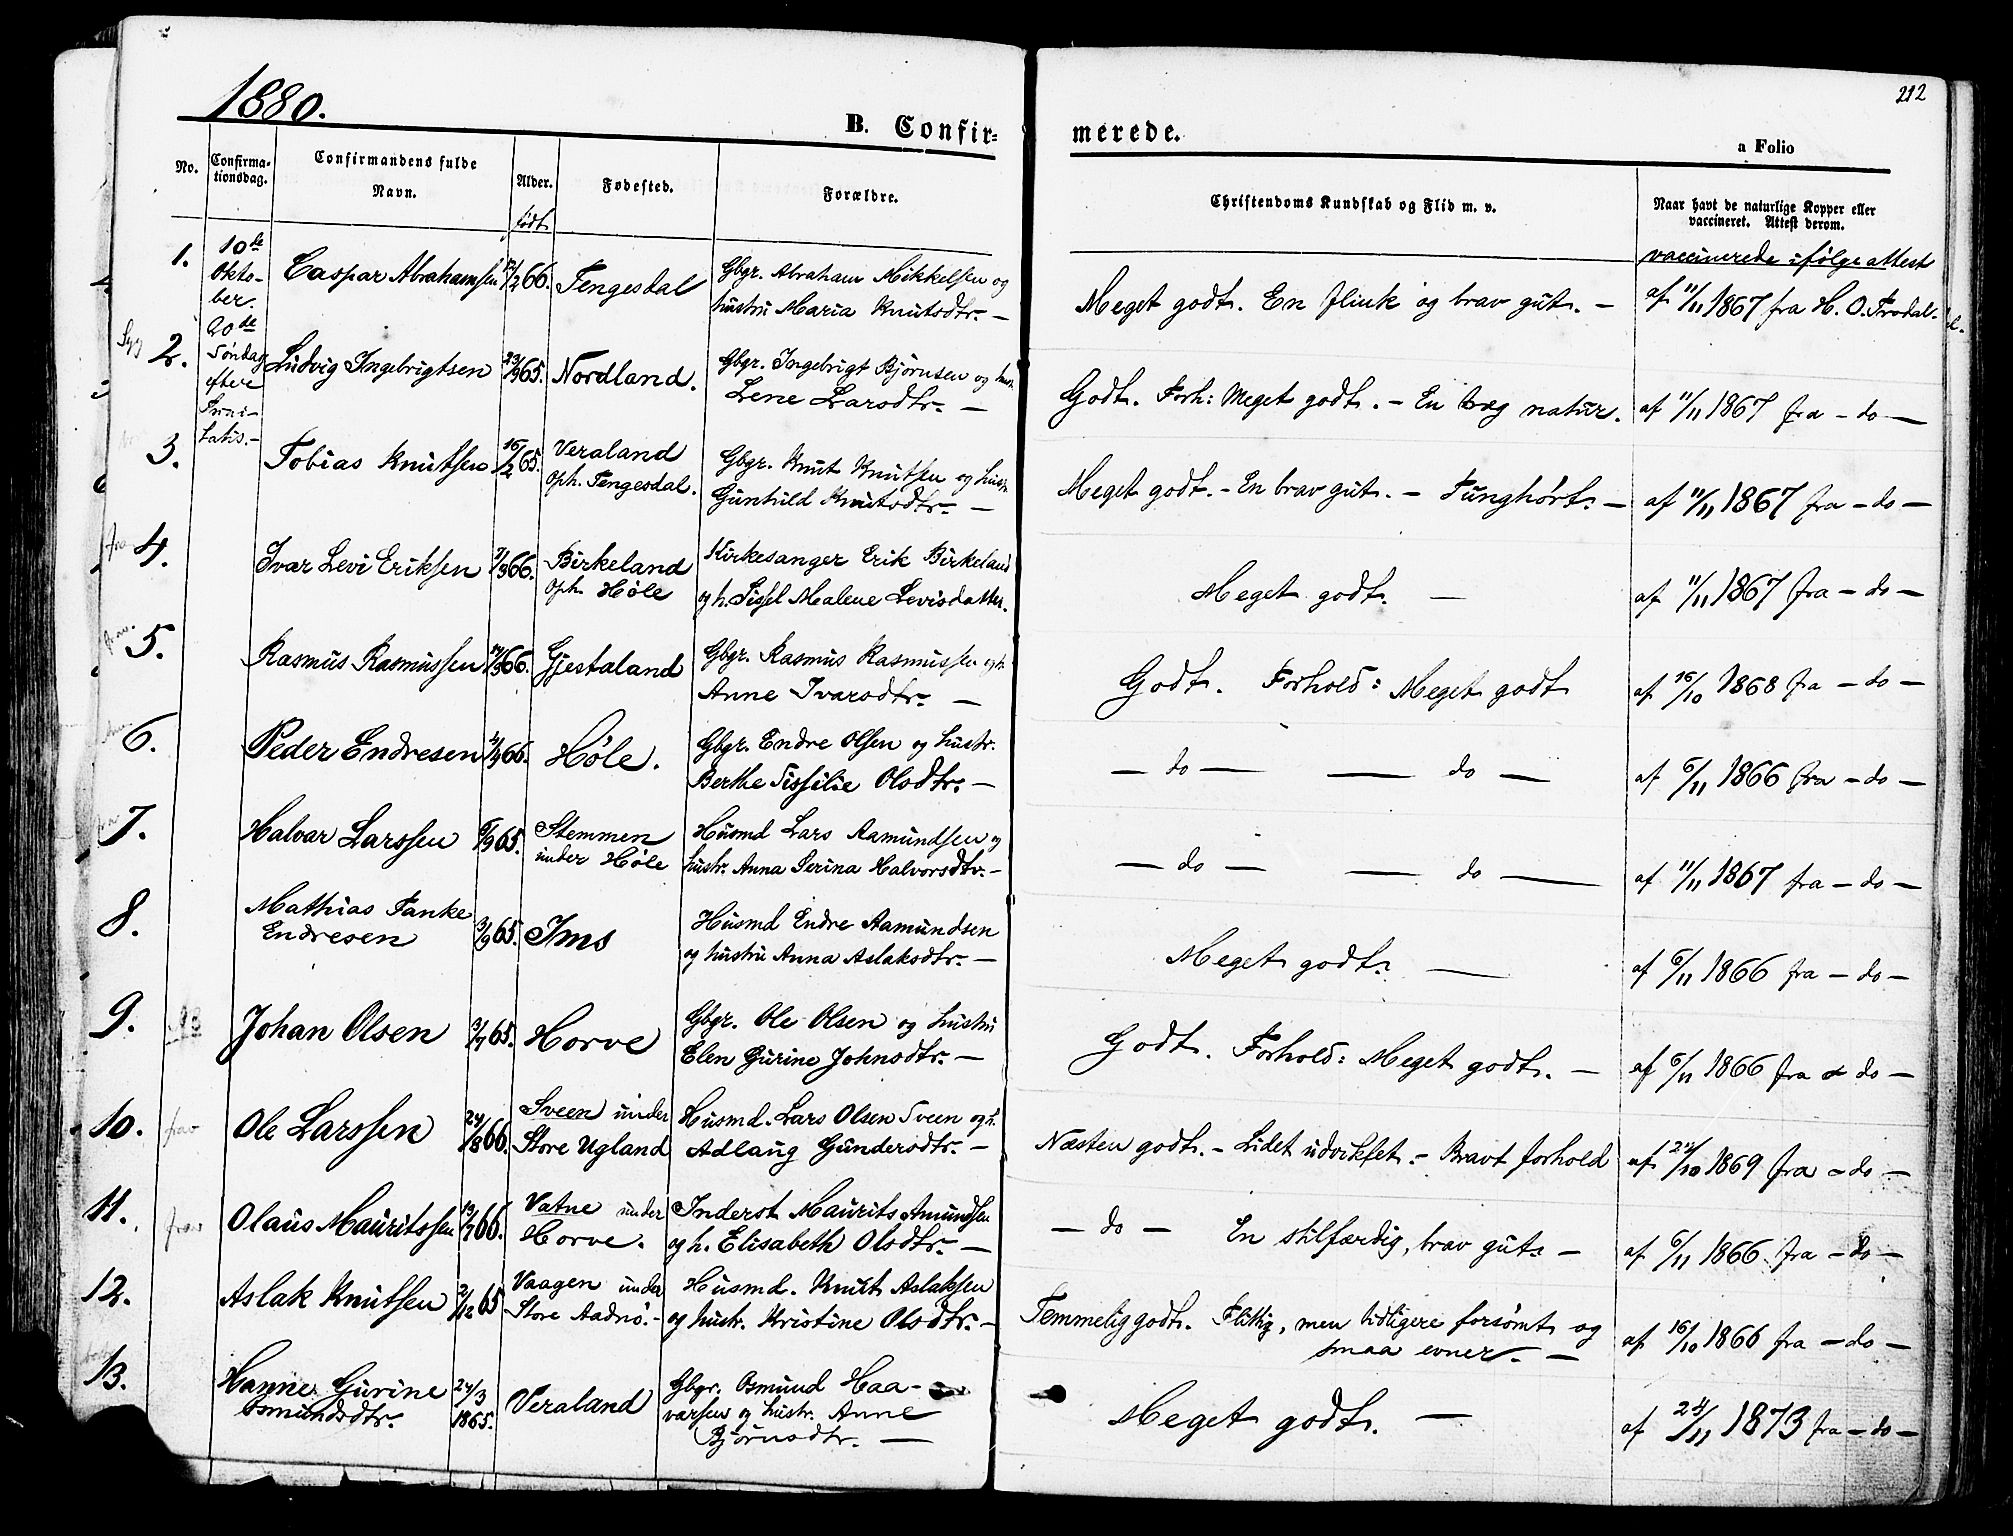 1880.
B. Confir=
merede.
212
a Folio
No.
Confirma-
tionsdag.
Confirmandens fulde
Navn.
Alder.
født
Fødested.
Forældre.
Christendoms Kundskab og Flid m. v.
Naar havt de naturlige Kopper eller
vaccineret. Attest derom.
vaccinerede ifølge attest
10de
Okto-
ber.
20de
Søndag
efter
Trini-
tatis.-
1.
Caspar Abrahamsen
66.
Tengesdal
Gbgr. Abraham Mikkelsen og
hustru Maria Knutsdtr. —
Meget godt. En flink og brav gut. —
af 11/11 1867 fra H. O. Frodal.
2.
Ludvig Ingebrigtsen
23/9 65.
Nordland.
Gbgr. Ingebrigt Bjørnsen og hustr.
Lene Larsdtr. —
Godt. Forh: Meget godt. - En træg natur.
af 11/11 1867 fra - do —
3.
Tobias Knutsen
16/2 65.
Veraland
oph. Tengesdal.
Gbgr. Knut Knutsen og hustr.
Gunhild Knutsdtr. —
Meget godt. - En brav gut. - Tunghørt. —
af 11/11 1867 fra - do —
4.
Ivar Levi Eriksen
66.
Birkeland
oph. Høle
Kirkesanger Erik Birkeland
og h. Sissel Malene Levisdatter.
Meget godt. —
af 11/11 1867 fra - do —
5.
Rasmus Rasmussen
66.
Gjestaland
Gbgr. Rasmus Rasmussen og h.
Anne Ivarsdtr. —
Godt. Forhold: Meget godt
af 16/10 1868 fra - do —
6.
Peder Endresen
66.
Høle.
Gbgr. Endre Olsen og hustr.
Berthe Sissilie Olsdtr. —
— do — — do —
af 6/11 1866 fra - do —
7.
Halvar Larssen
65.
Stemmen
under Høle
Husmd Lars Aamundsen og
hustr. Anna Serina Halvorsdtr. -
— do — — do —
af 11/11 1867 fra - do —
8.
Mathias Tanke
Endresen
3/9 65.
Ims
Husmd Endre Aamundsen
og hustru Anna Aslaksdtr. —
Meget godt. —
af 6/11 1866 fra - do —
9.
Johan Olsen
3/7 65.
Horve
Gbgr. Ole Olsen og hustru
Elen Gurine Johnsdtr. —
Godt. Forhold: Meget godt. —
af 6/11 1866 fra - do —
10.
Ole Larssen
24/8 66.
Sveen under
Store Ugland
Husmd. Lars Olsen Sveen og h.
Adlaug Gundersdtr. —
Næsten godt. - Lidet udviklet. - Bravt forhold
af 1869 fra - do —
11.
Olaus Mauritssen
13/7 66.
Vatne under
Horve.
Inderst Maurits Amundsen
og h. Elisabeth Olsdtr. —
— do — En stilfærdig, brav gut —
af 6/11 1866 fra - do —
12.
Aslak Knutsen
2/12 65
Vaagen under
Store Aadnø. -
Husmd. Knut Aslaksen
og hustr. Kristine Olsdtr. —
Temmelig godt. Flittig, men tidligere forsømt og
smaa evner. —
af 16/10 1866 fra - do —
13.
Hanne Gurine
Osmundsdtr.
24/3
1865.
Veraland
Gbgr. Osmund Haa-
varsen og hustr. Anne
Bjørnsdtr. —
Meget godt. —
af 24/11 1873 fra - do —